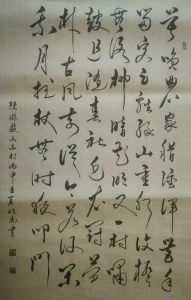 莫笑農家臘酒渾豐年
留客足雞豚山重水複疑
無路柳暗花明又一村簫
鼓追隨春社近衣冠簡
朴古風存從今若許閑
乘月拄杖無時夜叩門
陸游遊山西村丙申